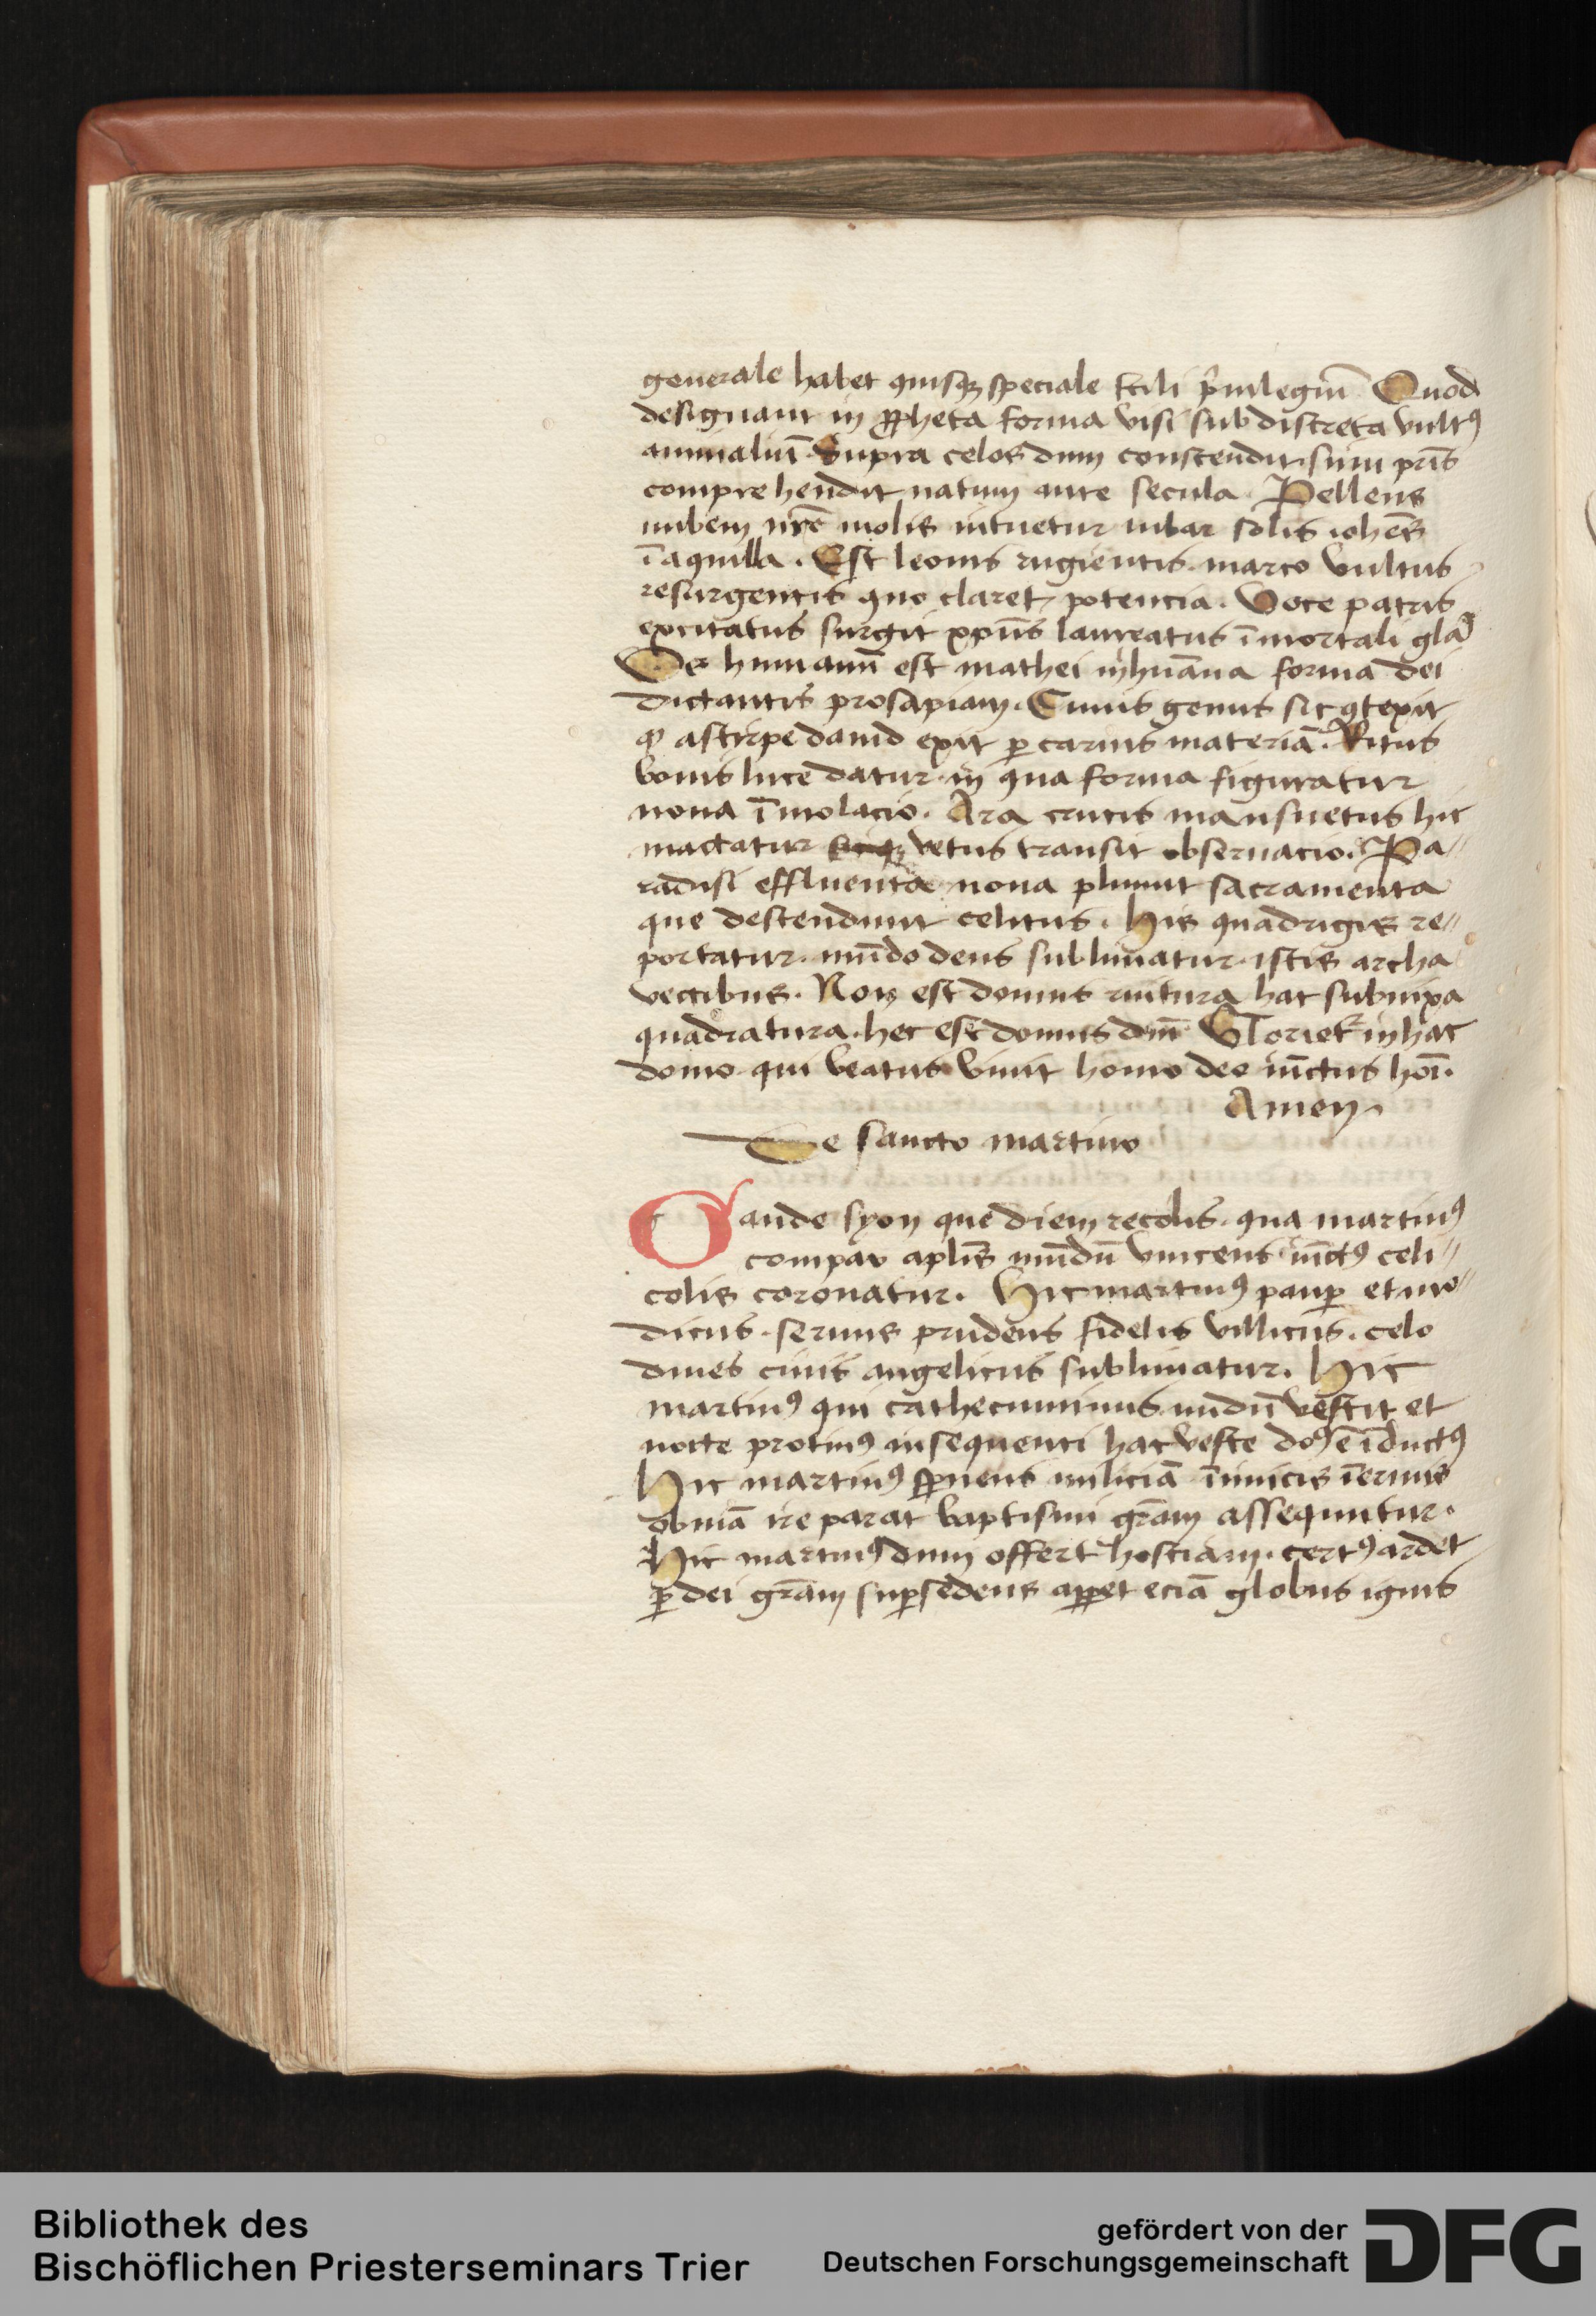 generale habet quisqꝫ speciale stili p̾uilegiū Quod
designant in ꝓpheta forma visi sub discreta vultꝰ
animaliū Supra celos dum conscendit sūmi pr̄is
comprehendit natum ante secula Pellens
nubem nr̄e molis intuetur iubar solis ioh̄es
ī aquilla. Est leonis rugientis marco vultus
resurgentis quo claret potencia. Voce patris
excitatus surgit xp̄us laureatus īmortali gl̄a
Os humanū est mathei in huāna forma dei
dictantis prosapiam. Cuius genus sic ꝯtexit
ꝙ a stirpe dauid exit ꝑ carnis materiā. Ritus
bouis luce datur in qua forma figuratur
noua īmolacio. Ara crucis mansuetus hic
mactatur sicqꝫ vetus transit obseruacio. Pa〃
radisi effluenta noua pluunt sacramenta
que descendunt celitus. His quadrigis re〃
portatur mūdo deus sublimatur istis archa
vectibus. Non est domus ruitura hac subnixa
quadratura hec est domus dn̄i Glorietꝛ in hac
domo qui beatus viuit homo deo iūctus hoı̄.
Amen.
De sancto martino
Gaude syon que diem recolis qua martinꝰ
compar apl̄is mūdū vincens iūctꝰ celi〃
colis coronatur. Hic martinꝰ pauꝑ et mo〃
dicus seruus prudens fidelis villicus celo
diues ciuis angelicus sublimatur. Hic
martinꝰ qui cathecuminus nudū vestit et
nocte protinꝰ insequenti hac veste dōs ē īductꝰ
Hic martinꝰ sꝑnens miliciā īimicis īermis
obuiā ire parat baptismi gr̄am assequutur.
Hic martinꝰ dum offert hostiam certꝰ ardet
ꝑ dei gr̄am suꝑsedens apꝑet eciā globus ignis
Bibliothek des
Bischöflichen Priesterseminars Trier
gefördert von der
Deutschen Forschungsgemeinschaft
DFG